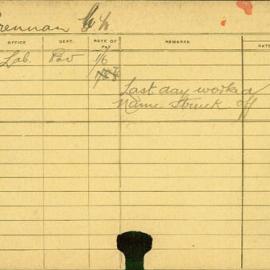 Brennan
OFFICE DEPT. RATE OF PAY REMARKS DATE
Lab. Pav 1/6
Last day worked
Name struck off